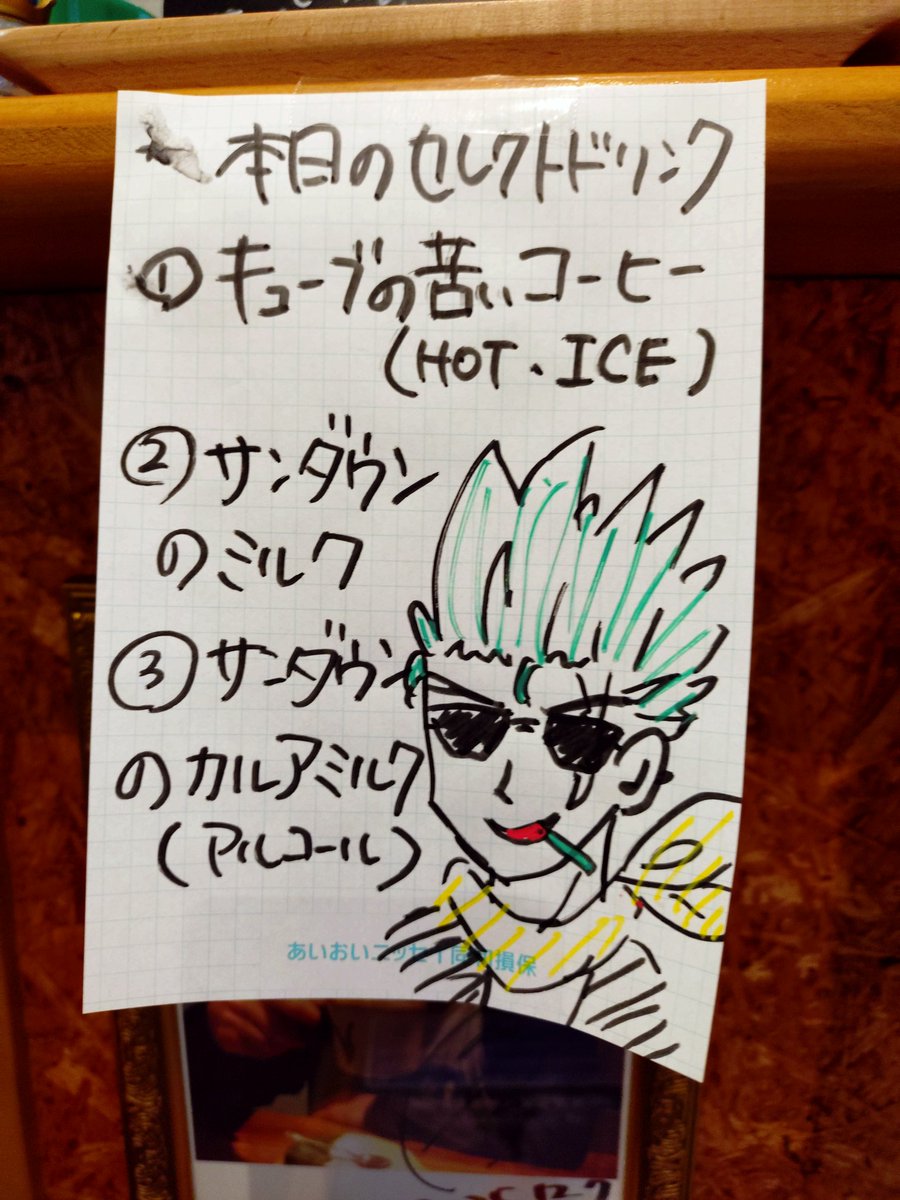 本日のセレクトドリンク
① キューブの苦いコーヒー
(HOT・ICE)
② サンダウン
のミルク
③ サンダウン
のカルアミルク
(アルコール)
あいおいニッセイ同和損保